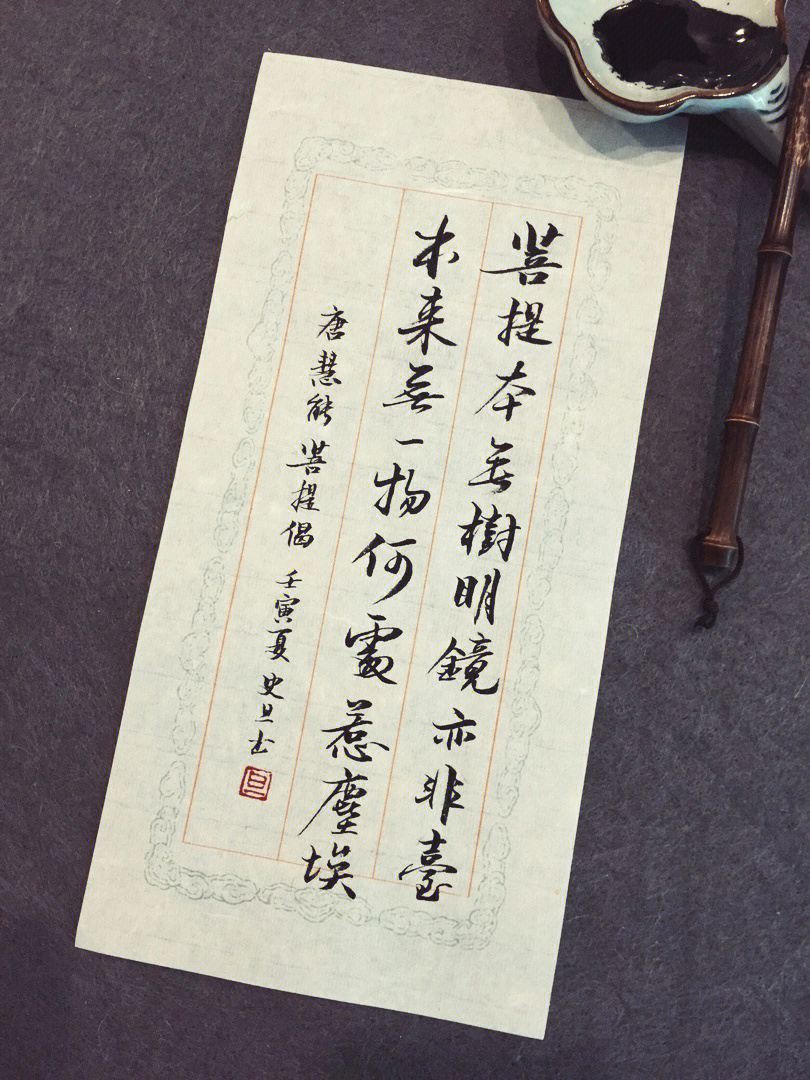 菩提本無樹明鏡亦非臺
本来無一物何處惹塵埃
唐慧能菩提偈 壬寅夏 史旦书
旦